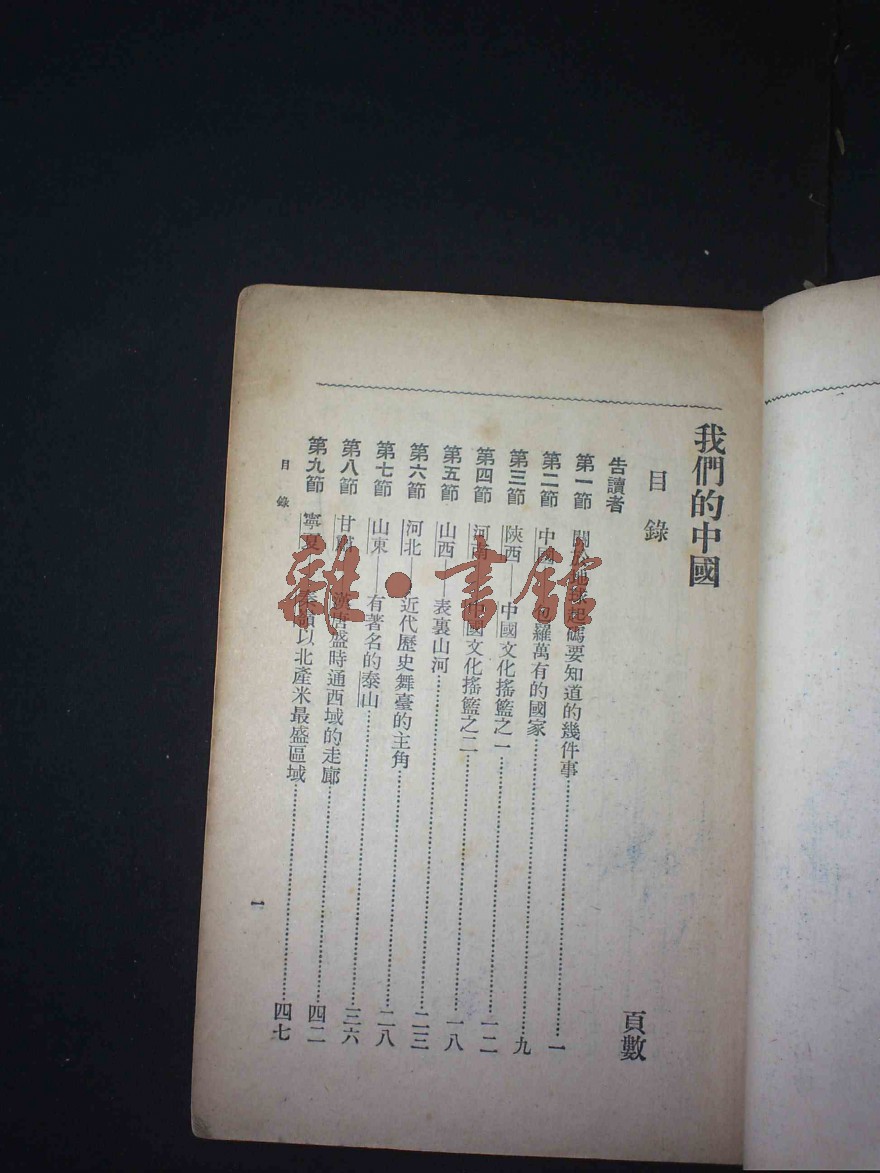 我們的中國
目錄
頁數
告讀者
第一節 關於地球起碼要知道的幾件事……一
第二節 中國——包羅萬有的國家……九
第三節 陝西——中國文化搖籃之一……一二
第四節 河南——中國文化搖籃之二……一八
第五節 山西——表裏山河……二三
第六節 河北——近代歷史舞臺的主角……二八
第七節 山東——有著名的泰山……三六
第八節 甘肅——漢唐盛時通西域的走廊……四二
第九節 寧夏——秦嶺以北產米最盛區域……四七
目錄
一
雜·書館